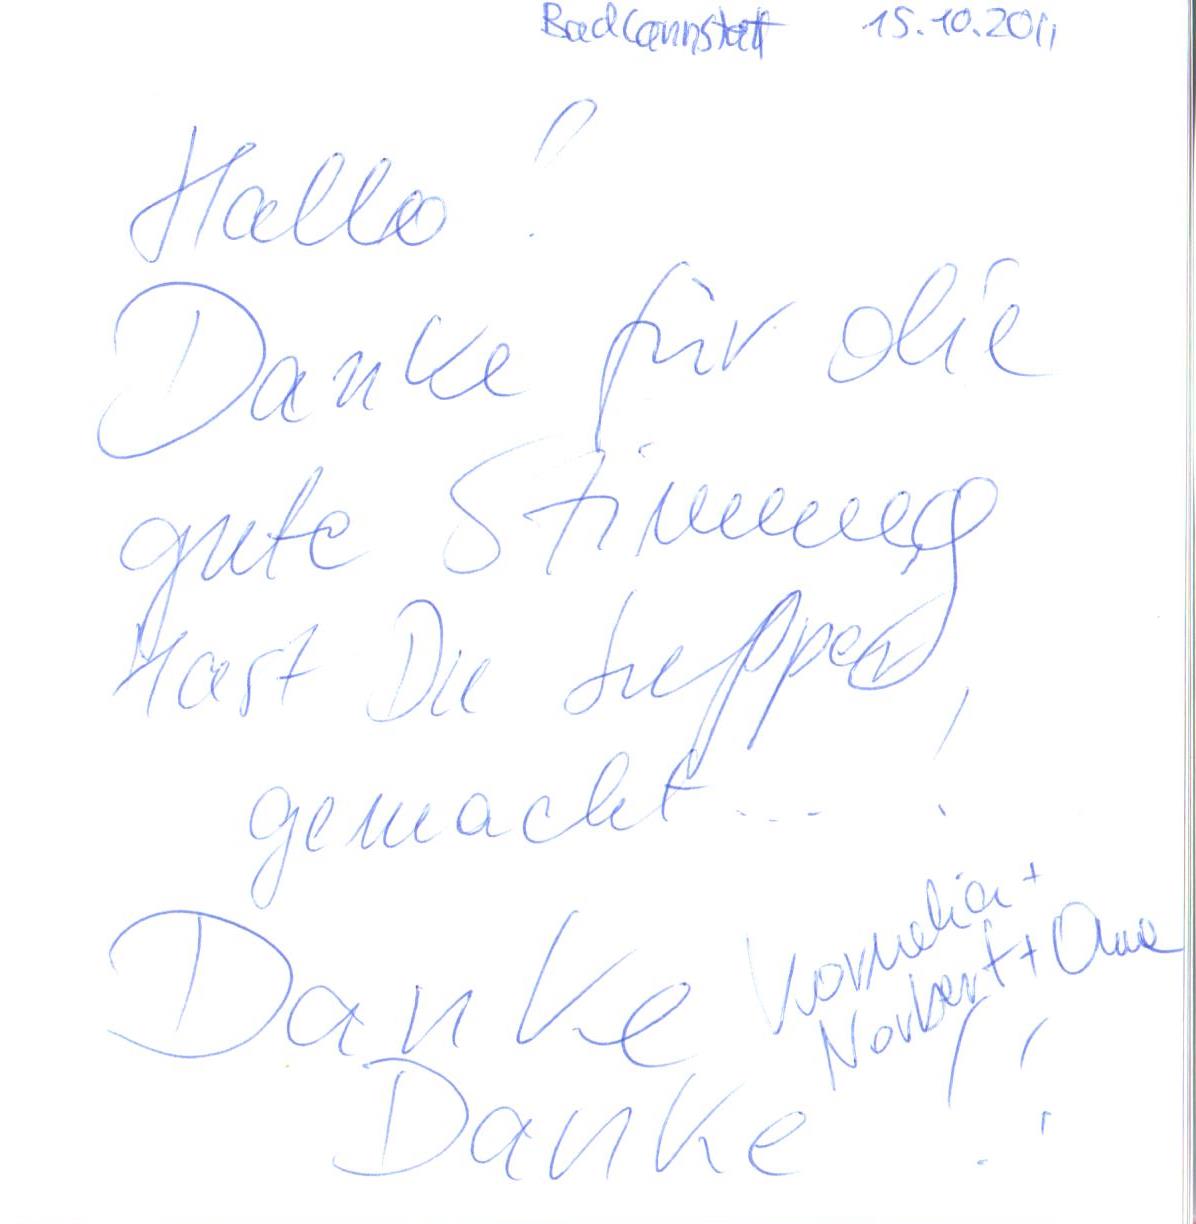 Bad Cannstatt 15.10.2011
Hallo!
Danke für die
gute Stimmung
Hast Du suppen
gemacht...!
Danke
Kornelia +
Norbert +
Danke !!